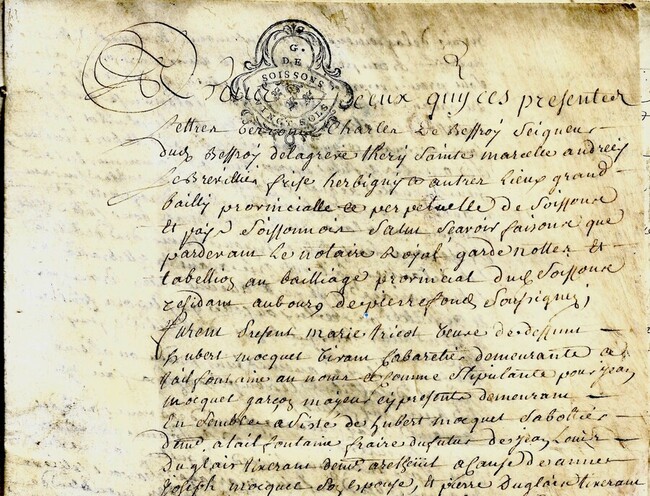 G.
DE
SOISSONS
VINGT SOLS
A Tous Ceux quy ces presentes
Lettres Verront Charles De Beffroy Seigneur
dud Beffroy delagreve thery Sainte marcelle andreçy
Le Brevillier frise herbigny & autres Lieux grand
bailly provincialle et perpetuelle de Soissons
Et pays Soissonnois Salut Scavoir faisons que
pardevant Le notaire Royal gardenottes Et
tabellion au bailliage provincial dud Soissons
residant au bourg de pierrefond Soussignez
furent present marie tricot veuve de deffunt
hubert mocquet vivant Cabaretier demeurante a
taill fontaine au noms et comme Stipulante pour jean
mocquet garçon mayeur cy present demeurant
En Semble assisté de hubert mocquet Sabottier
demt a tail fontaine fraire du futur de jean Louis
Duglair tixerant demt a retheüil a Cause de anne
joseph mocquet Son epouse, et pierre duglain tixerant